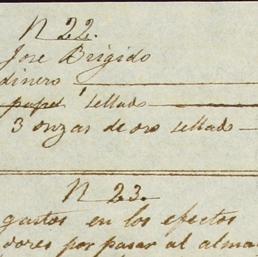 N 22.
Jose Brigido
dinero
papel sellado
3 onzas de oro sellado
N 23.
gastos en los efectos
dores por pasar al alma